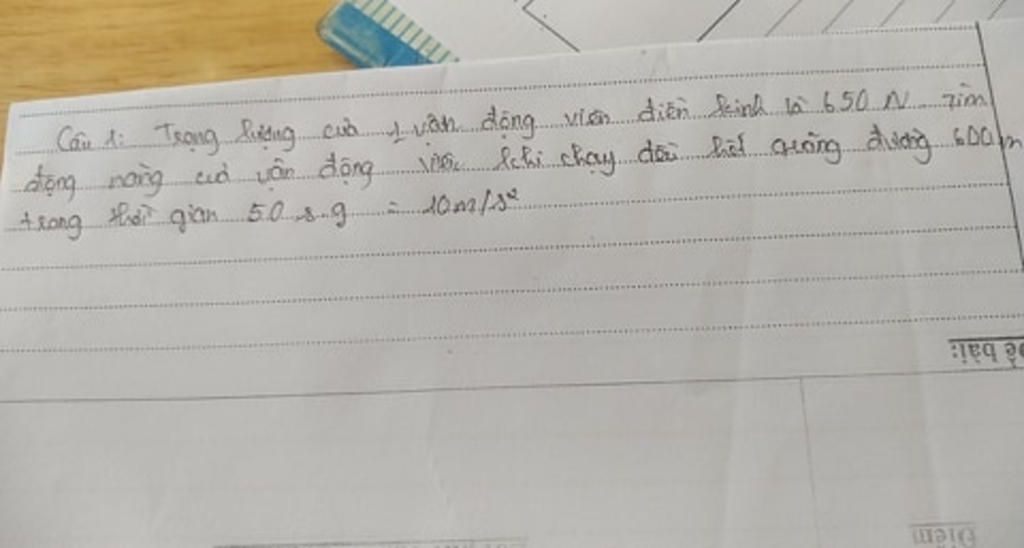 Câu 1: Trọng lượng của 1 vận động viên điền kinh là 650 N. Tìm
động năng của vận động viên khi chạy đều hết quãng đường 600 m
trong thời gian 50 s. g = 10 m/s²
Đề bài:
Điểm